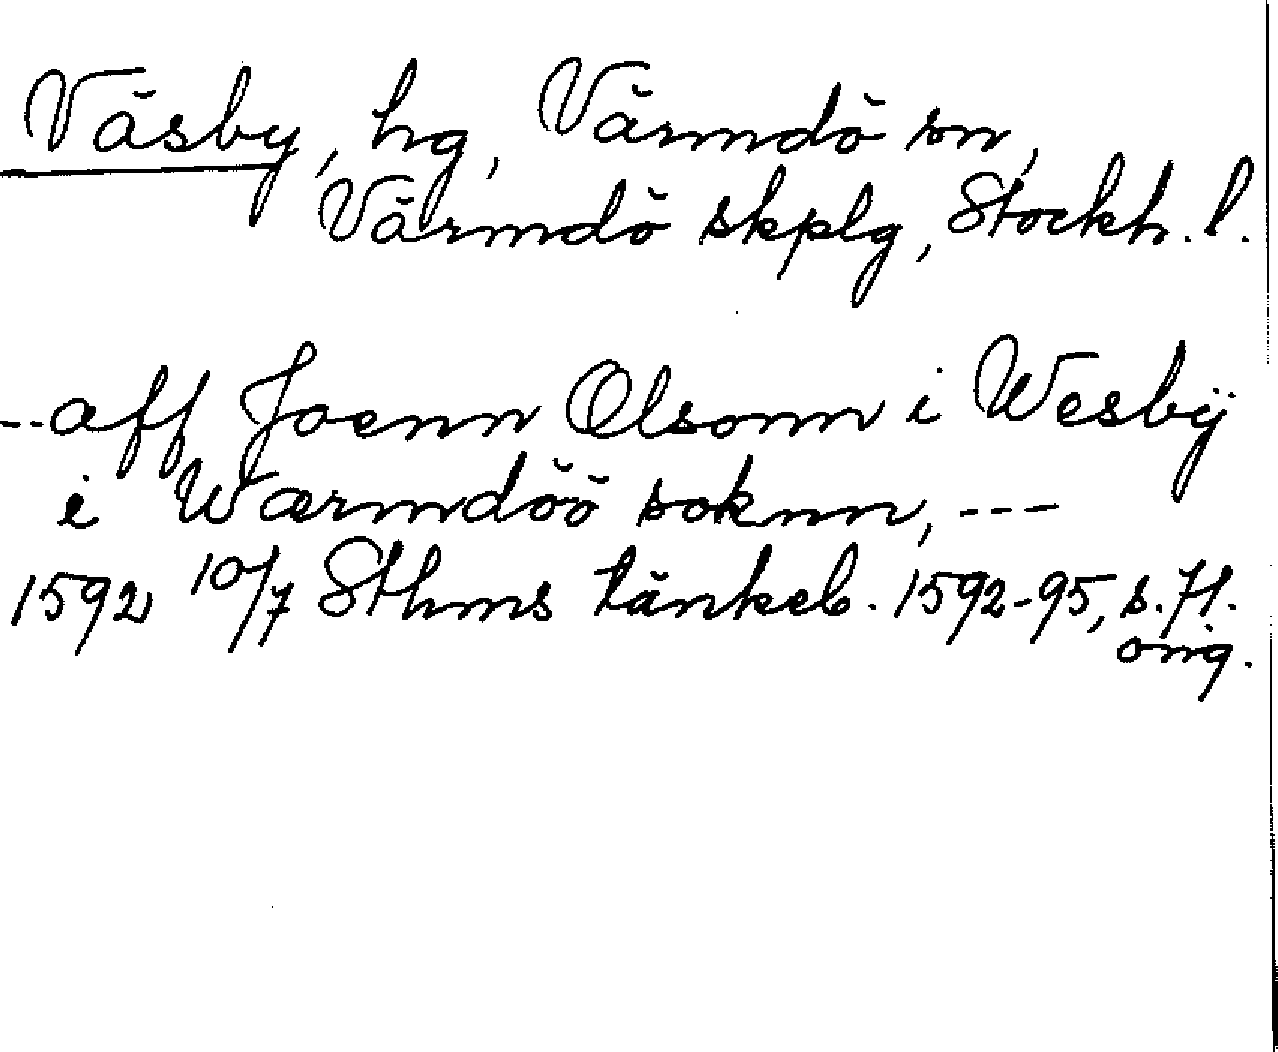 Väsby, hg, Värmdö sn,
Värmdö skplg, Stockh. l.
--aff Joenn Olsonn i Wesbÿ
i Wærmdöö soknn, ---
1592 10/7 Sthms tänkeb. 1592-95, s. 71.
orig.